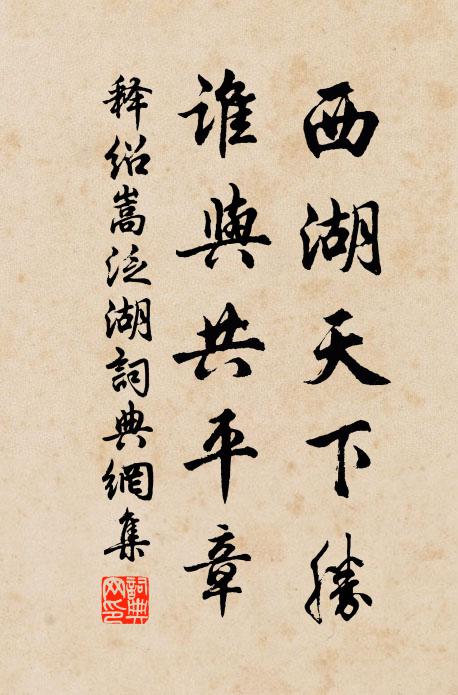 西湖天下勝
誰與共平章
釋紹嵩泛湖詞典網集
詞典網印